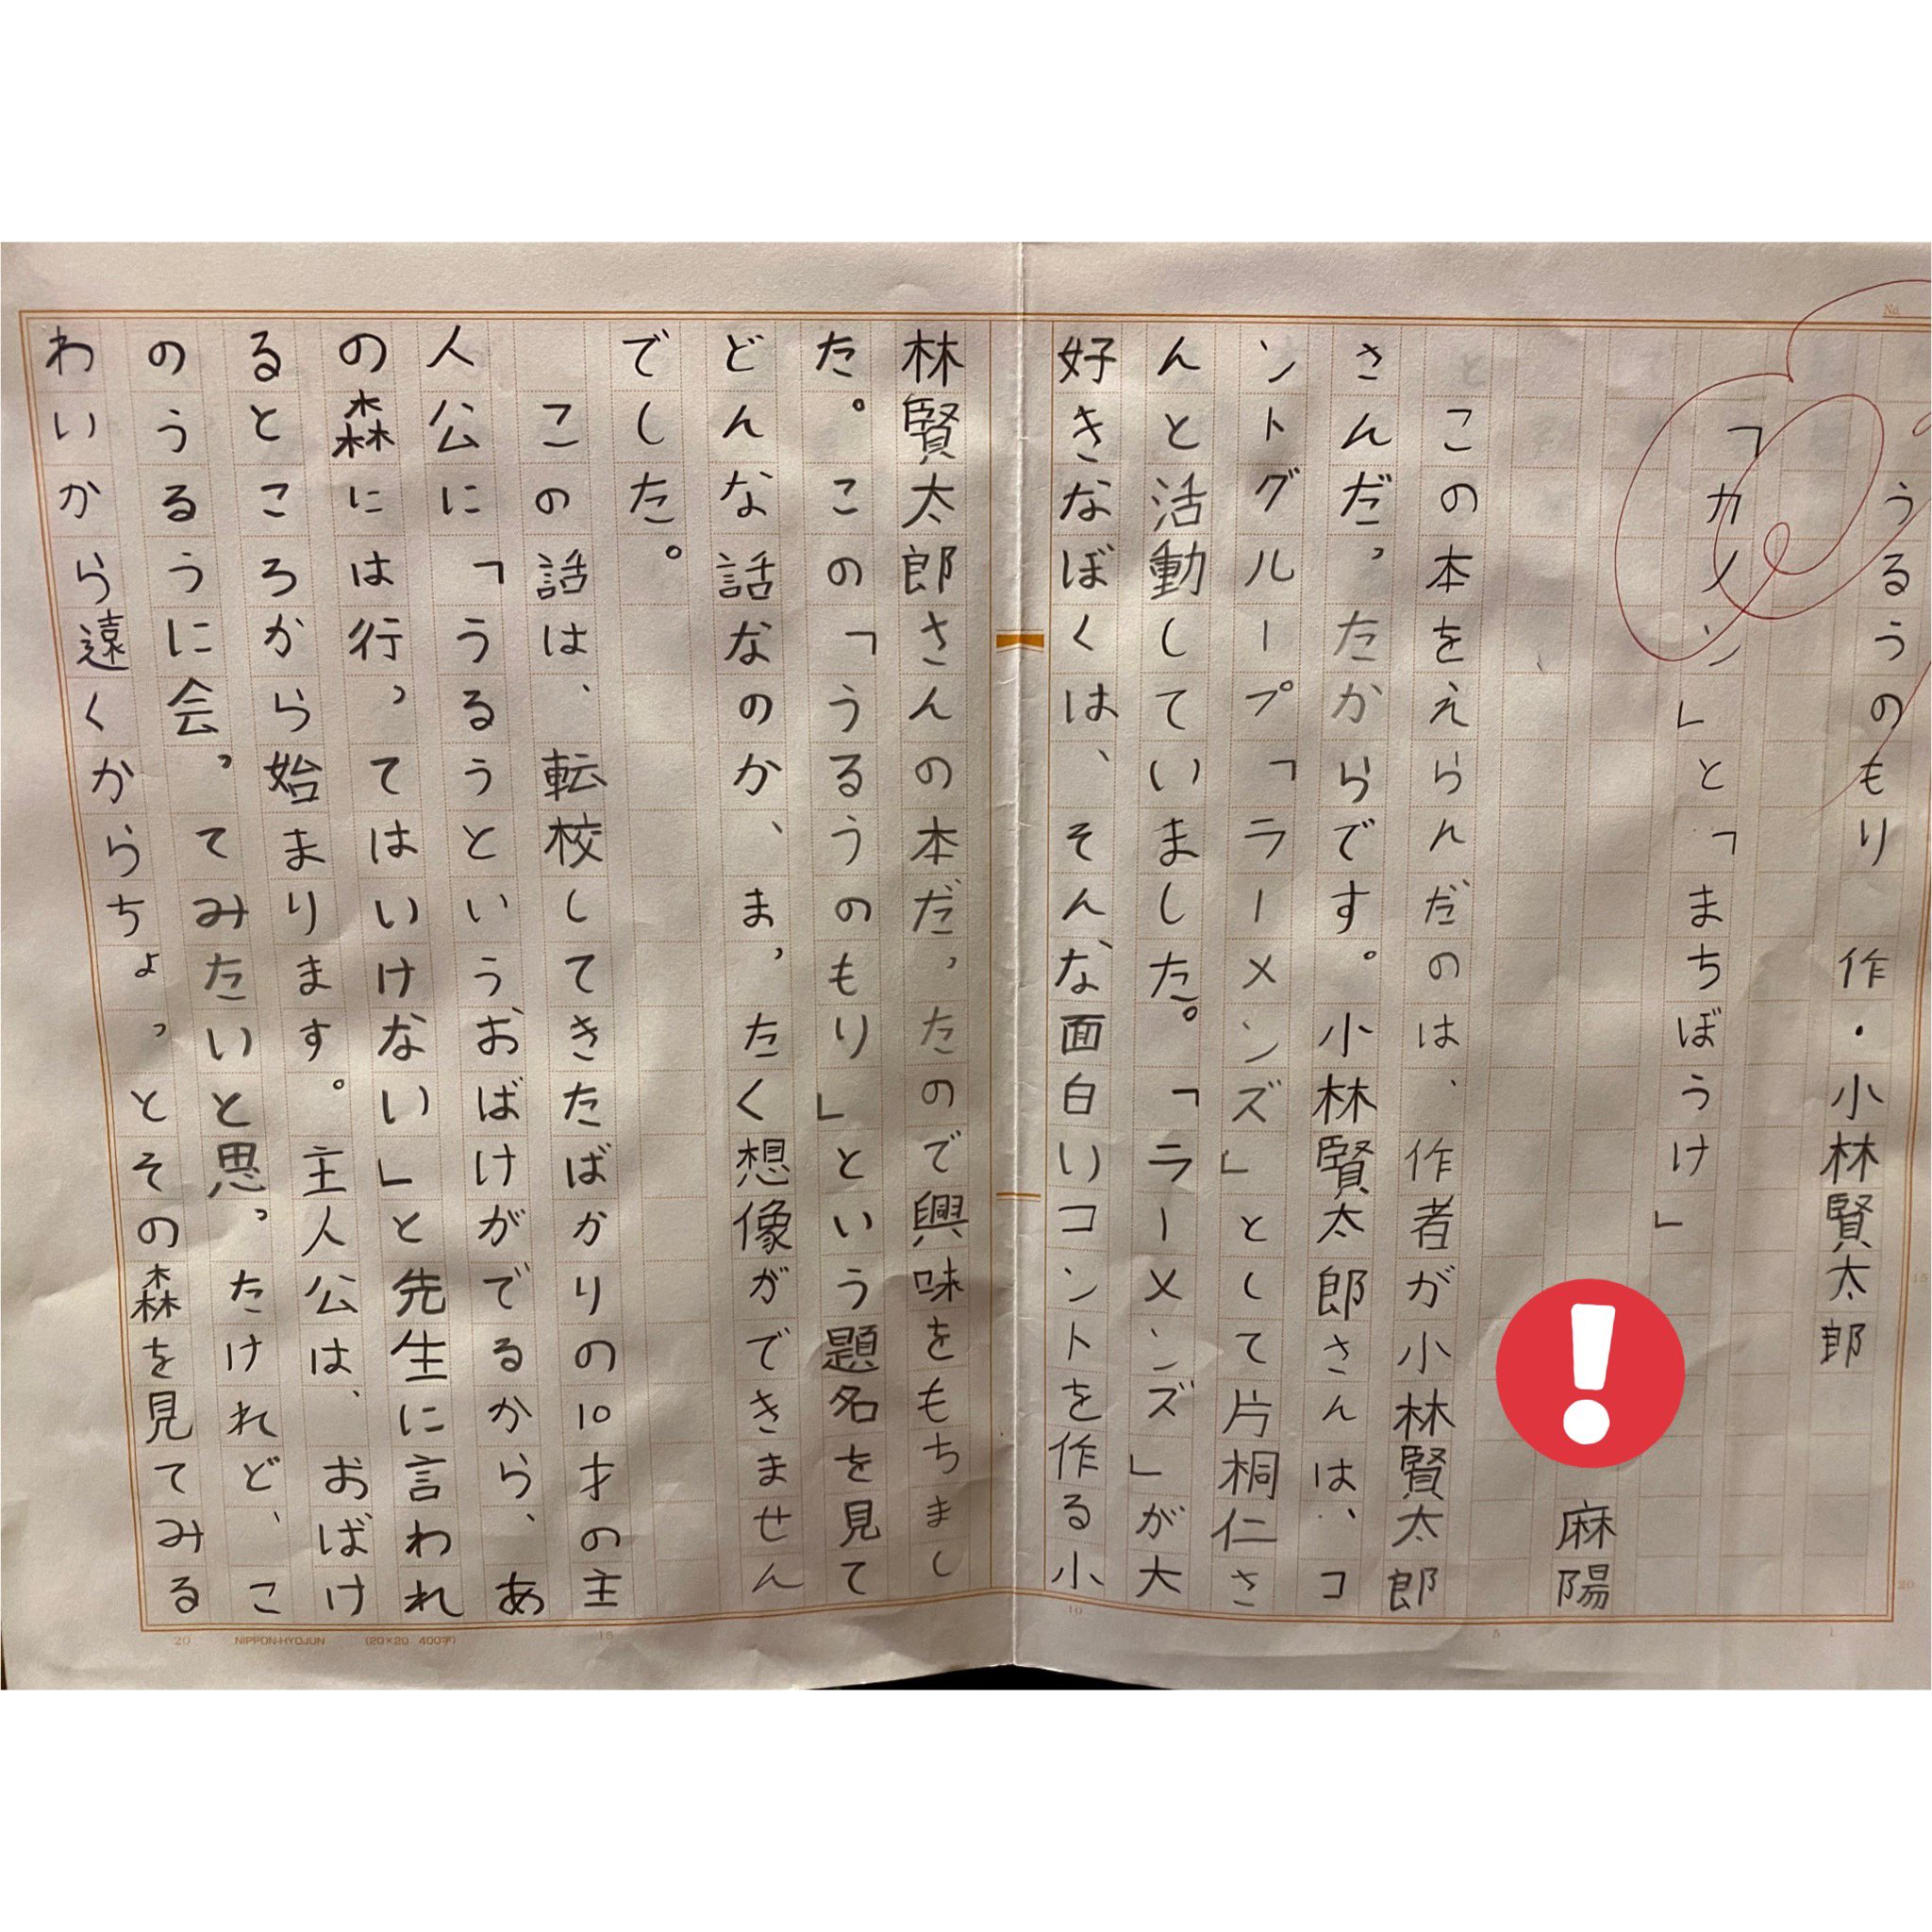 うるうのもり　作・小林賢太郎
「カメン」と「まちぼうけ」
麻陽
この本をえらんだのは、作者が小林賢太郎
さんだったからです。小林賢太郎さんは、コ
ントグループ「ラーメンズ」として片桐仁さ
んと活動していました。「ラーメンズ」が大
好きなぼくは、そんな面白いコントを作る小
林賢太郎さんの本だったので興味をもちまし
た。この「うるうのもり」という題名を見て
どんな話なのか、まったく想像ができません
でした。
この話は、転校してきたばかりの10才の主
人公に「うるうというおばけがでるから、あ
の森には行ってはいけない」と先生に言われ
るところから始まります。主人公は、おばけ
のうるうに会ってみたいと思ったけれど、こ
わいから遠くからちょっとその森を見てみる
NIPPON-HYOJUN　(20×20　400字)
No.
1
5
10
15
20
20